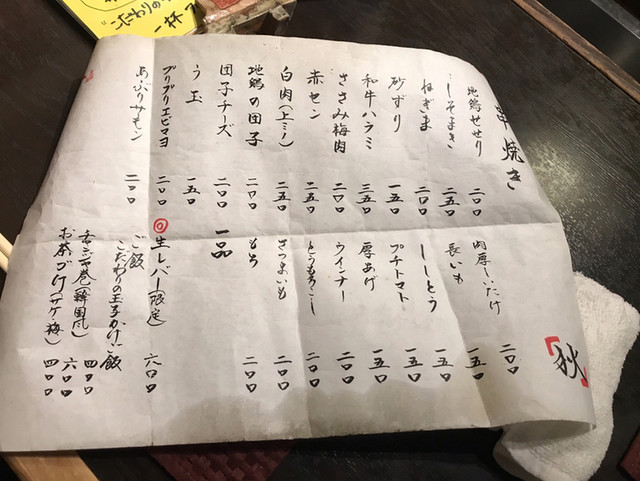 こだわりの
一杯
串焼き
地鶏せせり 二〇〇
しそまき 二五〇
ねぎま 二〇〇
砂ずり 一五〇
和牛ハラミ 三五〇
ささみ梅肉 二〇〇
赤セン 二五〇
白肉(上ミノ) 二五〇
地鶏の団子 二〇〇
団子チーズ 二〇〇
う玉 一五〇
プリプリエビマヨ 二〇〇
あぶりサーモン 二〇〇
「秋」
肉厚しいたけ 二〇〇
長いも 一五〇
ししとう 一五〇
プチトマト 一五〇
厚あげ 一五〇
ウインナー 二〇〇
とうもろこし 二〇〇
さつまいも 二〇〇
もち 二〇〇
一品
生レバー(限定) 六〇〇
ご飯
こだわりの玉子かけご飯 四〇〇
チヂミ巻(韓国風) 六〇〇
お茶づけ(サケ・梅) 四〇〇